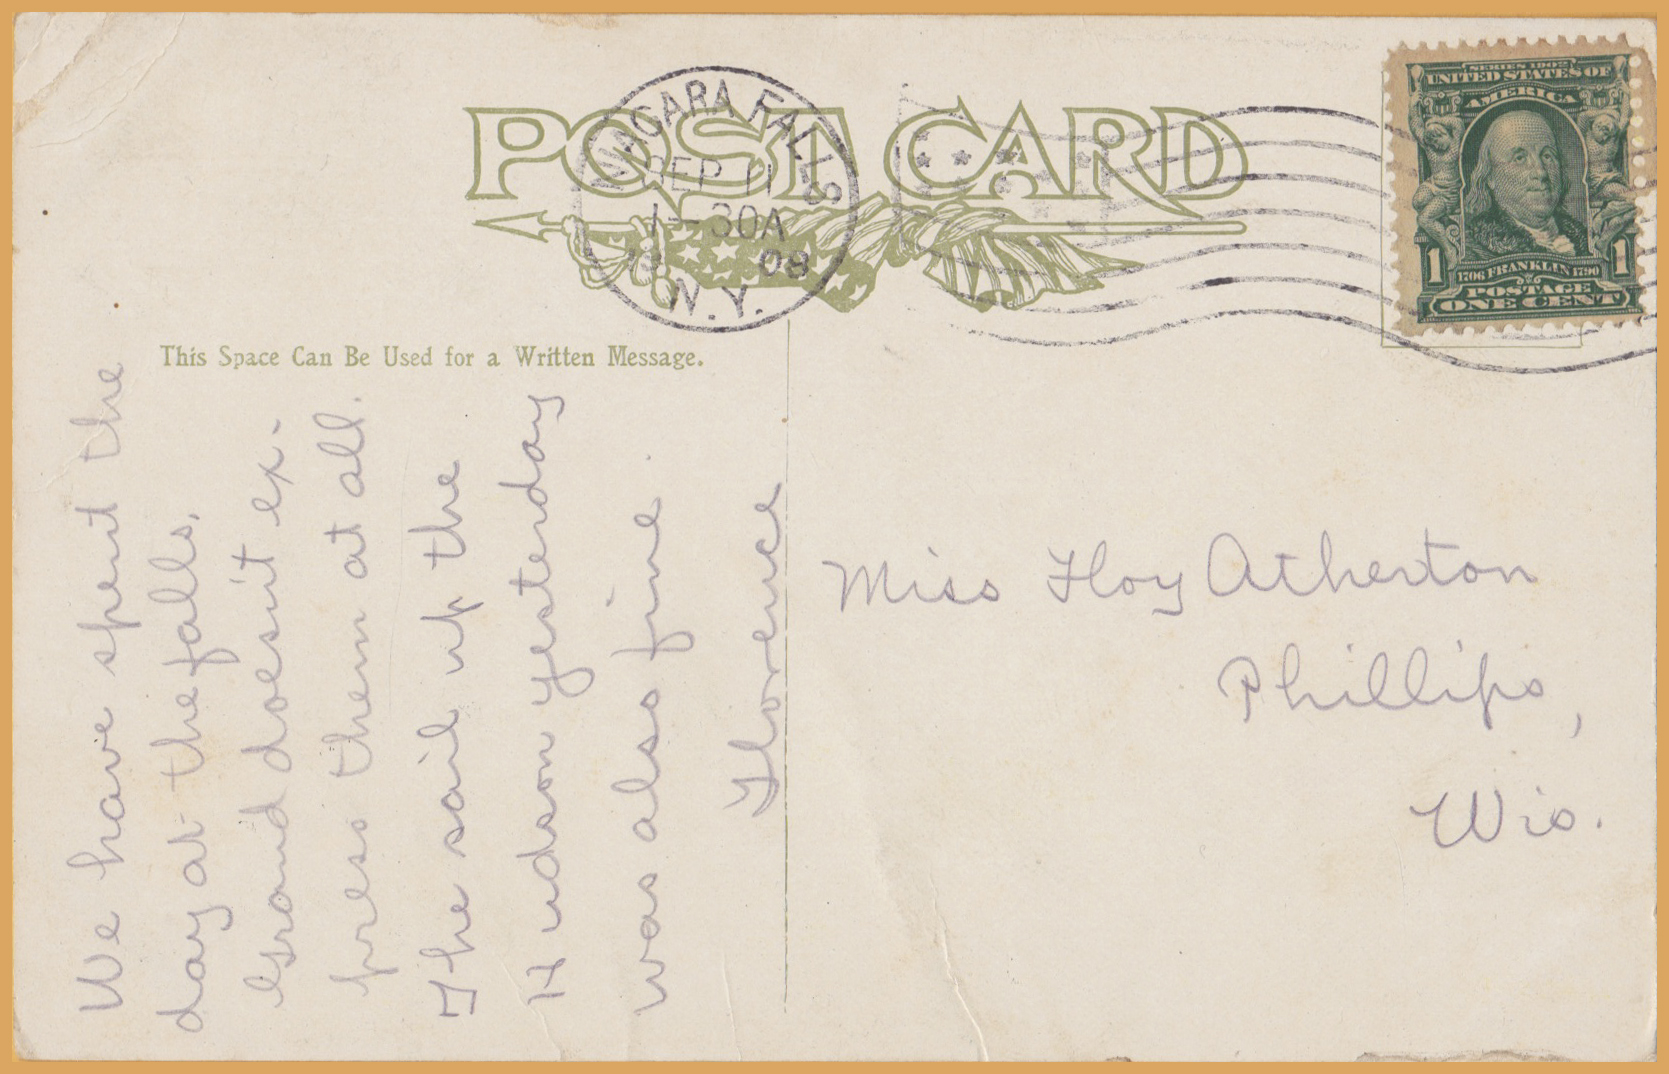 POST CARD
NIAGARA FALLS
SEP 11
1-30A
08
N.Y.
SERIES 1902
UNITED STATES OF
AMERICA
1 1
1706 FRANKLIN 1790
POSTAGE
ONE CENT
This Space Can Be Used for a Written Message.
We have spent the
day at the falls.
Grand doesn't ex-
press them at all.
The sail up the
Hudson yesterday
was also fine.
Florence
Miss Floy Atherton
Phillips,
Wis.